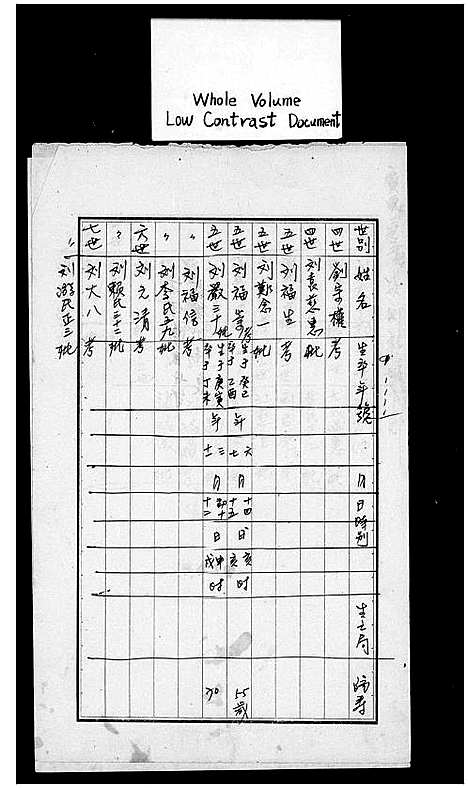 Whole Volume
Low Contrast Document
世别 姓名 生卒年號 月 日 時别 生亡局 歸壽
四世 劉宗權 考
四世 刘袁慈惠 妣
五世 刘福生 考
五世 刘鄭念一 妣
五世 刘福崇 考 生于癸巳 卒于乙酉 年 六 七 月 十四 十五 日 亥 亥 时 55歲
五世 刘嚴三十 妣 生于庚寅 卒于丁未 年 三 十二 月 初十 十二 日 申 戌 时 70
〃 刘福信 考
〃 刘李氏五九 妣
六世 刘元清 考
〃 刘賴氏三十二 妣
七世 刘大八 考
〃 刘游氏正三 妣